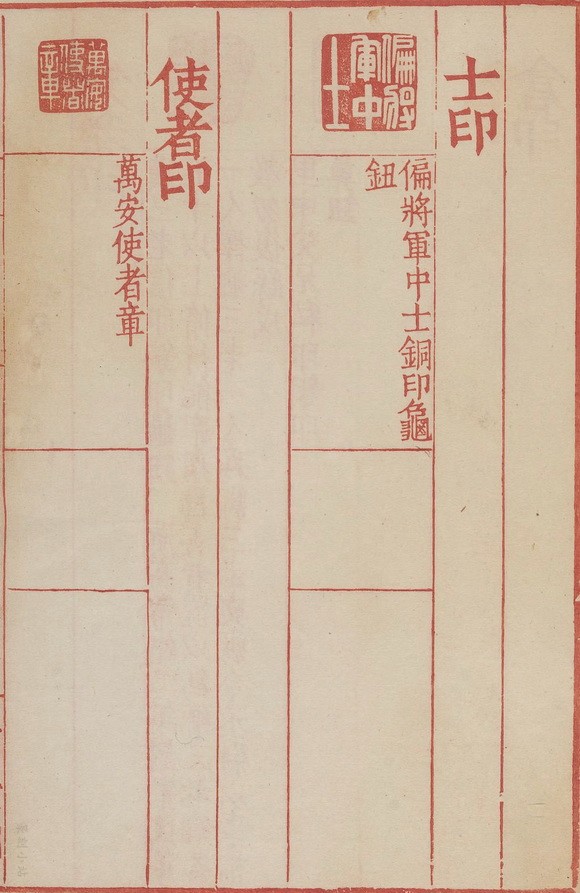 士印
偏將軍中士
偏將軍中士銅印龜
鈕
使者印
萬安使者章
萬安使者章